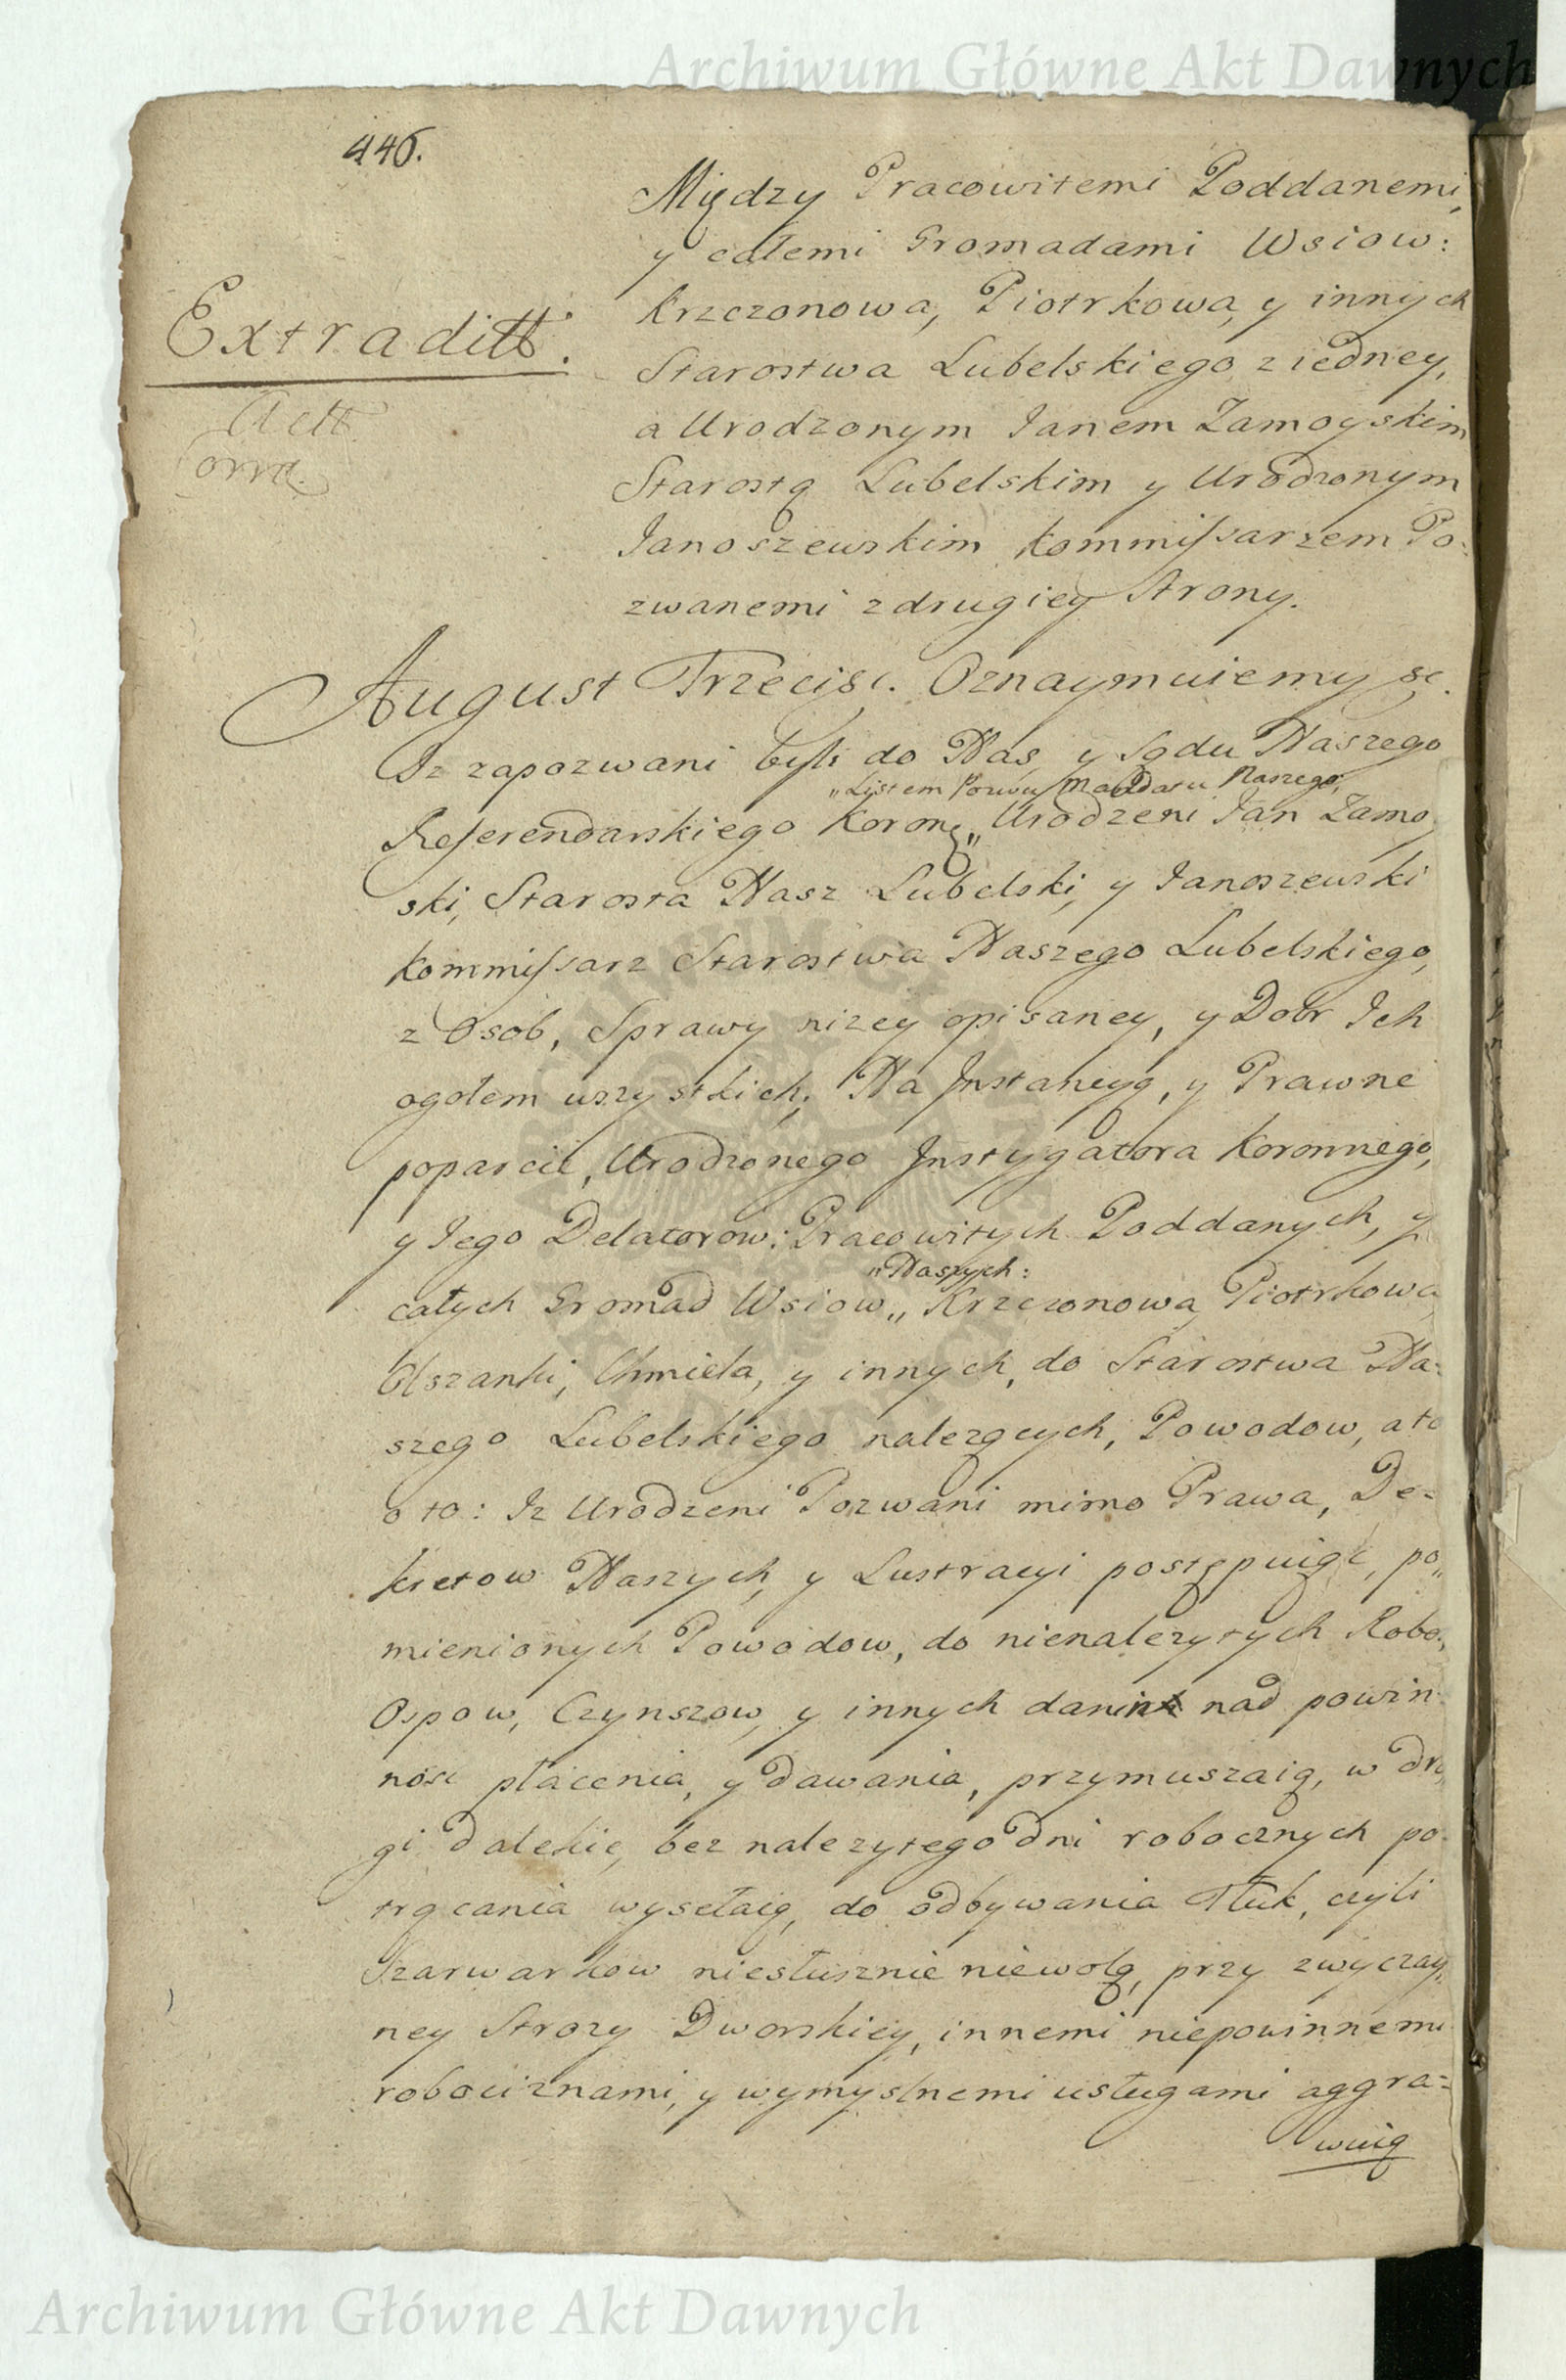 Archiwum Główne Akt Dawnych
446.
Między Pracowitemi Poddanemi,
y całemi Gromadami Wsiow:
Krzczonowa, Piotrkowa, y innych
Extraditt.
Starostwa Lubelskiego z iedney,
a Urodzonym Janem Zamoyskim
Starostą Lubelskim y Urodzonym
Janoszewskim Kommissarzem Po:
zwanemi z drugiey Strony.
August Trzeci &c. Oznaymuiemy &c.
Iz zapozwani byli do Nas, y Sądu Naszego
„Listem Pozwu Mandatu Naszego,
Referendarskiego Koronę „ Urodzeni Jan Zamo,
ski, Starosta Nasz Lubelski, y Janoszewski
Kommissarz Starostwa Naszego Lubelskiego,
z Osob, Sprawy nizey opisaney, y Dobr Ich
ogołem wszystkich, Na Instancyą, y Prawne
poparcie, Urodzonego Instygatora Koronnego,
y Jego Delatorow: Pracowitych Poddanych, y
„Naszych:
całych Gromad Wsiow „ Krzczonowa, Piotrkowa
Olszanki, Chmiela, y innych, do Starostwa Na:
szego Lubelskiego nalezących, Powodow, a to
o to: Iz Urodzeni Pozwani mimo Prawa, De=
kretow Naszych, y Lustracyi postępuiąc, po„
mienionych Powodow, do nienalezytych Robo,
Ospow, Czynszow, y innych danin nad powin
nosc płacenia, y dawania, przymuszaią, w dro,
gi dalekie, bez nalezytego dni robocznych po.
trącania wysełaią, do odbywania Tłuk, czyli
Szarwarkow niesłusznie niewolą, przy zwyczay,
ney Strozy Dworskiey, innemi niepowinnemi
robociznami, y wymyslnemi usługami aggra=
wuią
Archiwum Główne Akt Dawnych